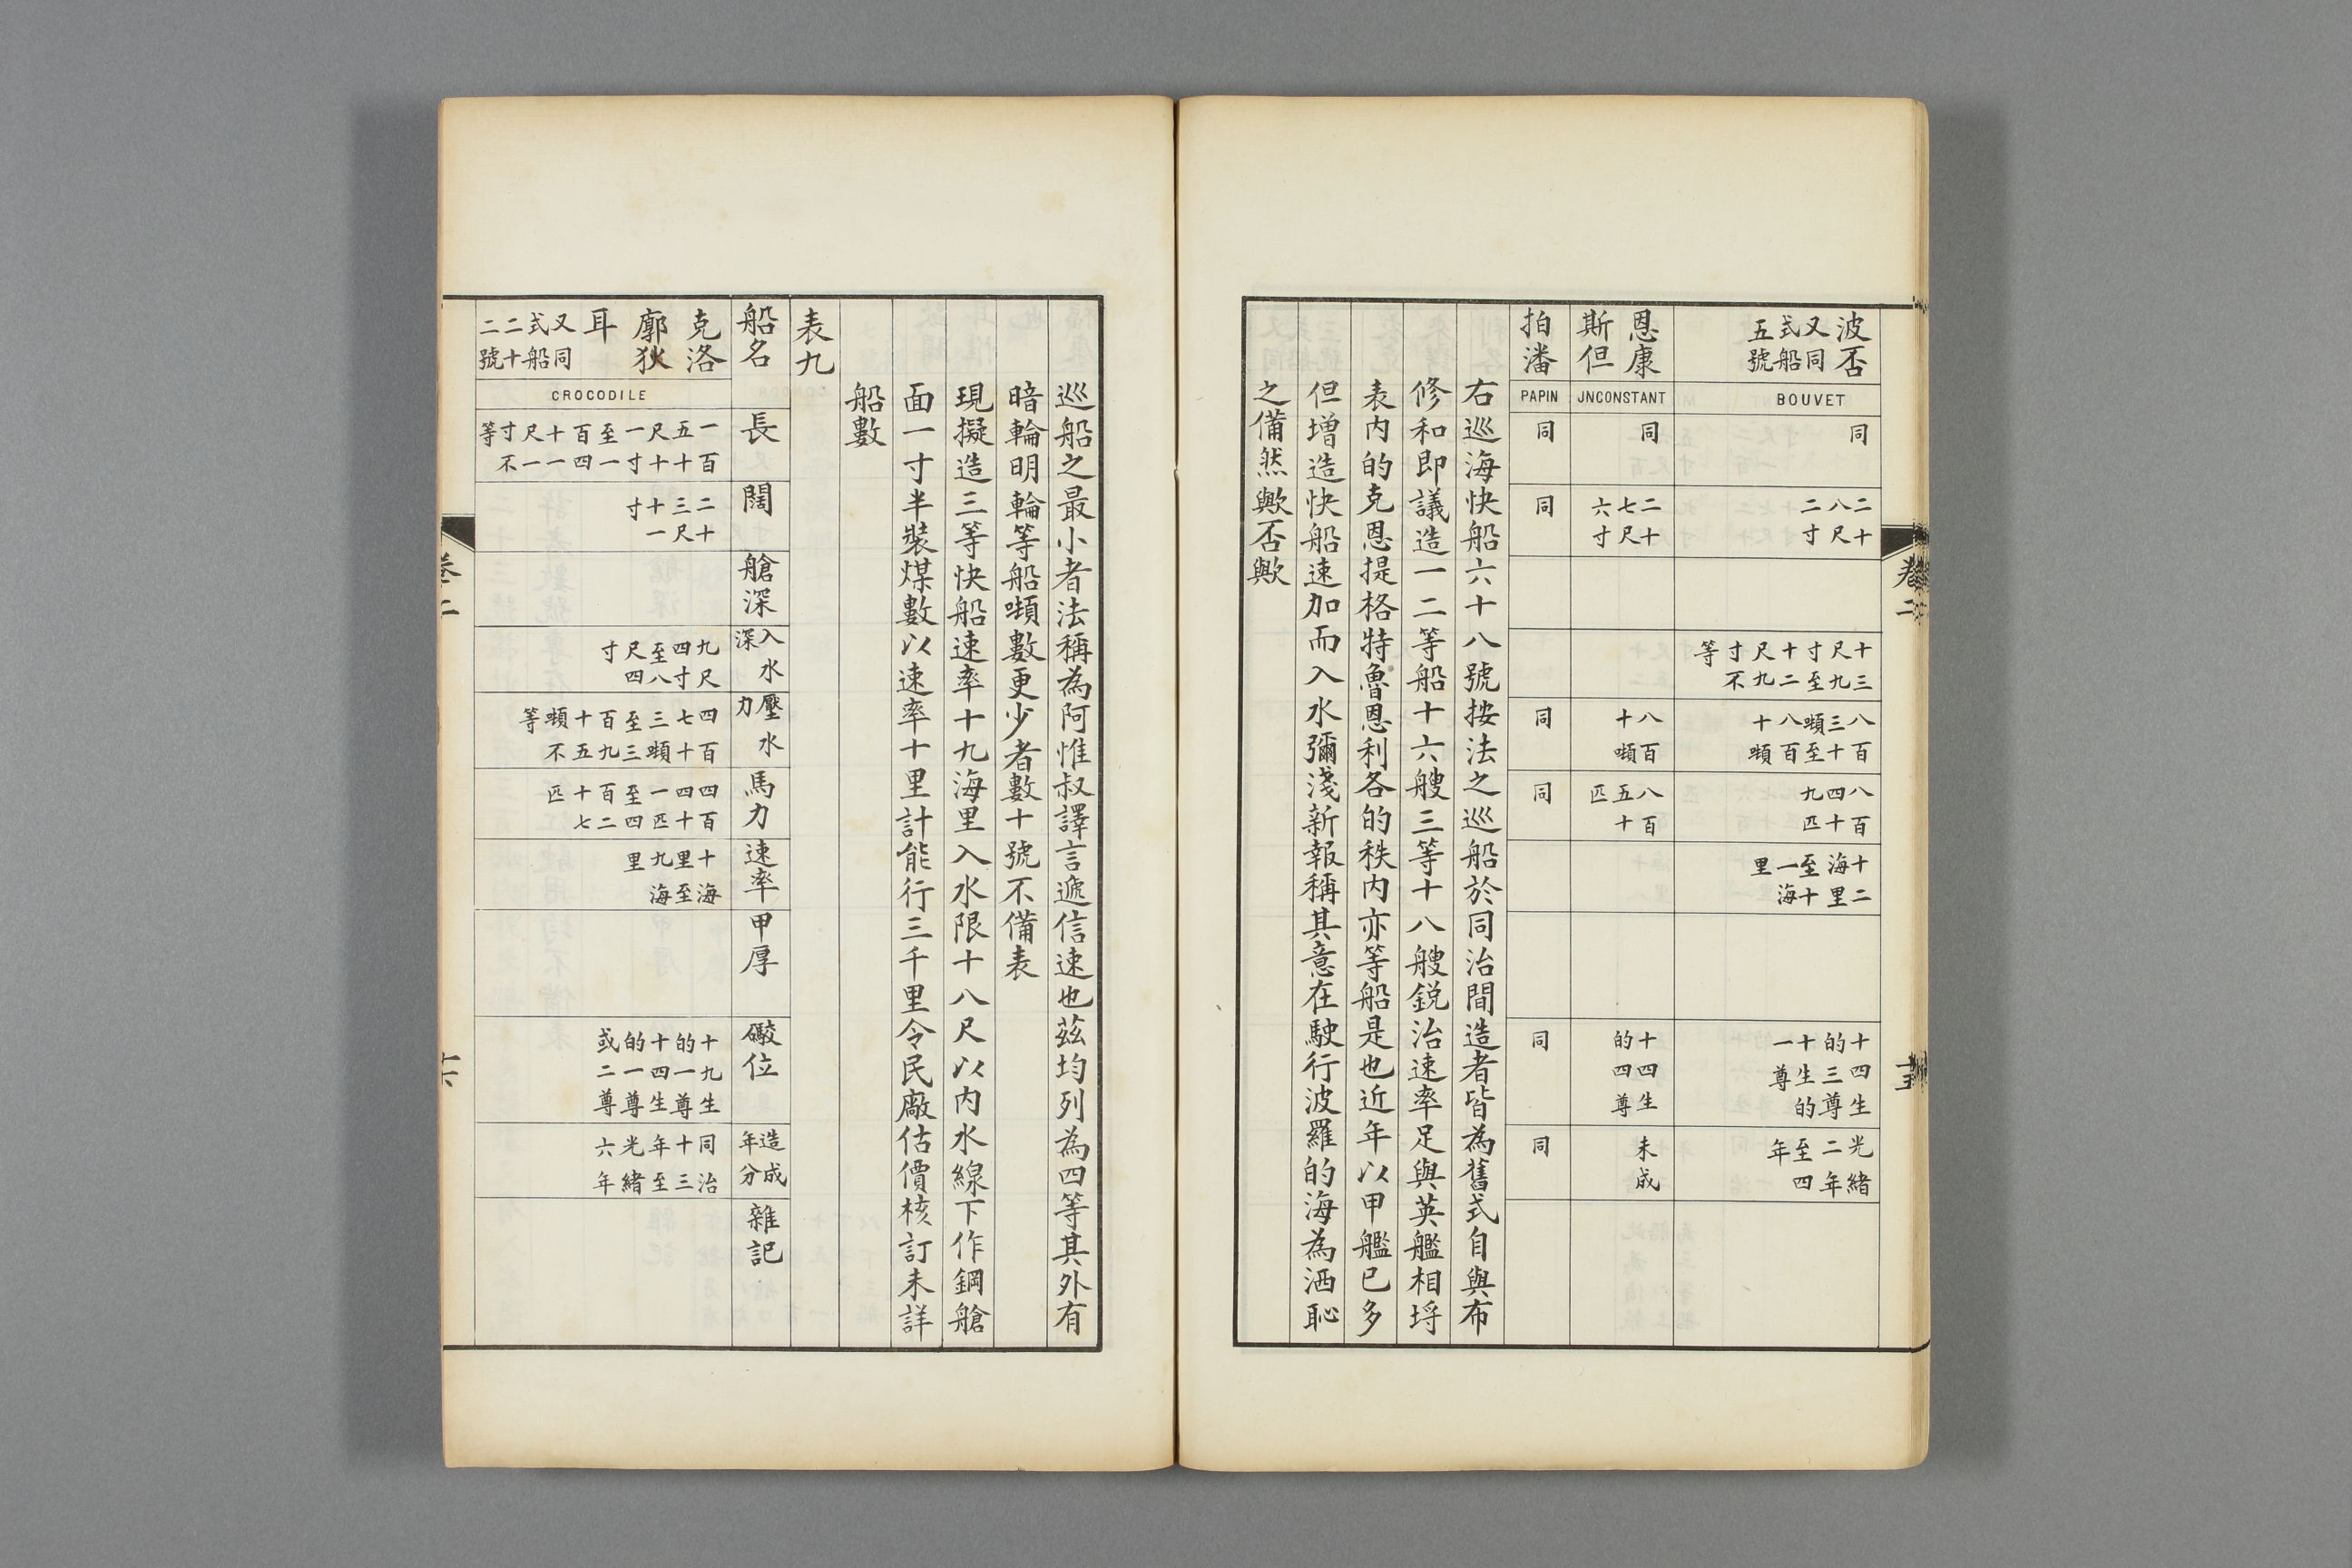 波否
又同
式船
五號
BOUVET
同
二十
八尺
二寸
十三
尺九
寸至
十二
尺九
寸不
等
八百
三十
噸至
八百
十噸
八百
四十
九匹
十二
海里
至十
一海
里
十四生
的三尊
十生的
一尊
光緒
二年
至四
年
恩康
斯但
JNCONSTANT
同
二十
七尺
六寸
八百
十噸
八百
五十
匹
十四生
的四尊
未成
拍潘
PAPIN
同
同
同
同
同
同
右巡海快船六十八號按法之巡船於同治間造者皆為舊式自與布
修和即議造一二等船十六艘三等十八艘銳治速率足與英艦相埒
表內的克恩提格特魯恩利各的秩內亦等船是也近年以甲艦已多
但增造快船速加而入水彌淺新報稱其意在駛行波羅的海為洒恥
之備然歟否歟
卷二
十五
巡船之最小者法稱為阿惟叔譯言遞信速也茲均列為四等其外有
暗輪明輪等船噸數更少者數十號不備表
現擬造三等快船速率十九海里入水限十八尺以內水線下作鋼艙
面一寸半裝煤數以速率十里計能行三千里令民廠估價核訂未詳
船數
表九
船名
長
闊
艙深
入水
深
壓水
力
馬力
速率
甲厚
礮位
造成
年分
雜記
克洛
廓狄
耳
又同
式船
二十
二號
CROCODILE
一百
五十
尺十
一寸
至一
百四
十一
尺一
寸不
等
二十
三尺
十一
寸
九尺
四寸
至八
尺四
寸
四百
七十
三噸
至三
百九
十五
噸不
等
四百
四十
一匹
至四
百二
十七
匹
十海
里至
九海
里
十九生
的一尊
十四生
的一尊
或二尊
同治
十三
年至
光緒
六年
卷二
十六